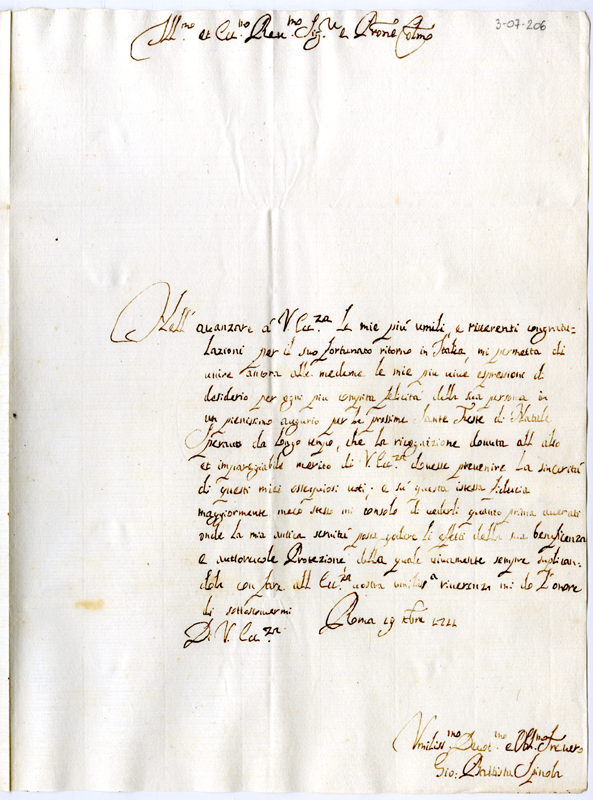 3-07-206
Ill.mo et Ecc.mo Reu.mo Sig.r e Prone Colmo
Nell' auanzare á V Ecc.za le mie piú umili, e riuerenti congratu-
lazioni per il suo fortunato ritorno in Italia, mi permetta di
unire ancora alle medeme le mie piu uiue espressioni di
desiderio per ogni piu compita felicitá della sua persona in
un pienissimo augurio per le prossime Sante Feste di Natale
Sperauo da longo tempo, che la ricognizione douuta all alto
et impareggiabile merito di V. Ecc.za douesse preuenire la sinceritá
di questi miei ossequiosi uoti, e su questa istessa fiducia
maggiormente meco stesso mi consolo di uederli quanto prima auerati
onde la mia antica seruitú possa godere li effetti della sua beneficenza
e auttoreuole Protezione della quale uiuamente sempre suplican-
dola con fare all Ecc.za uostra umilis.a riuerenza mi do l'onore
di sottoscriuermi
D. V. Ecc.za Roma 19 xbre 1711
Vmiliss.mo Deuot.mo e Obl.mo Seruero
Gio: Battista Spinola